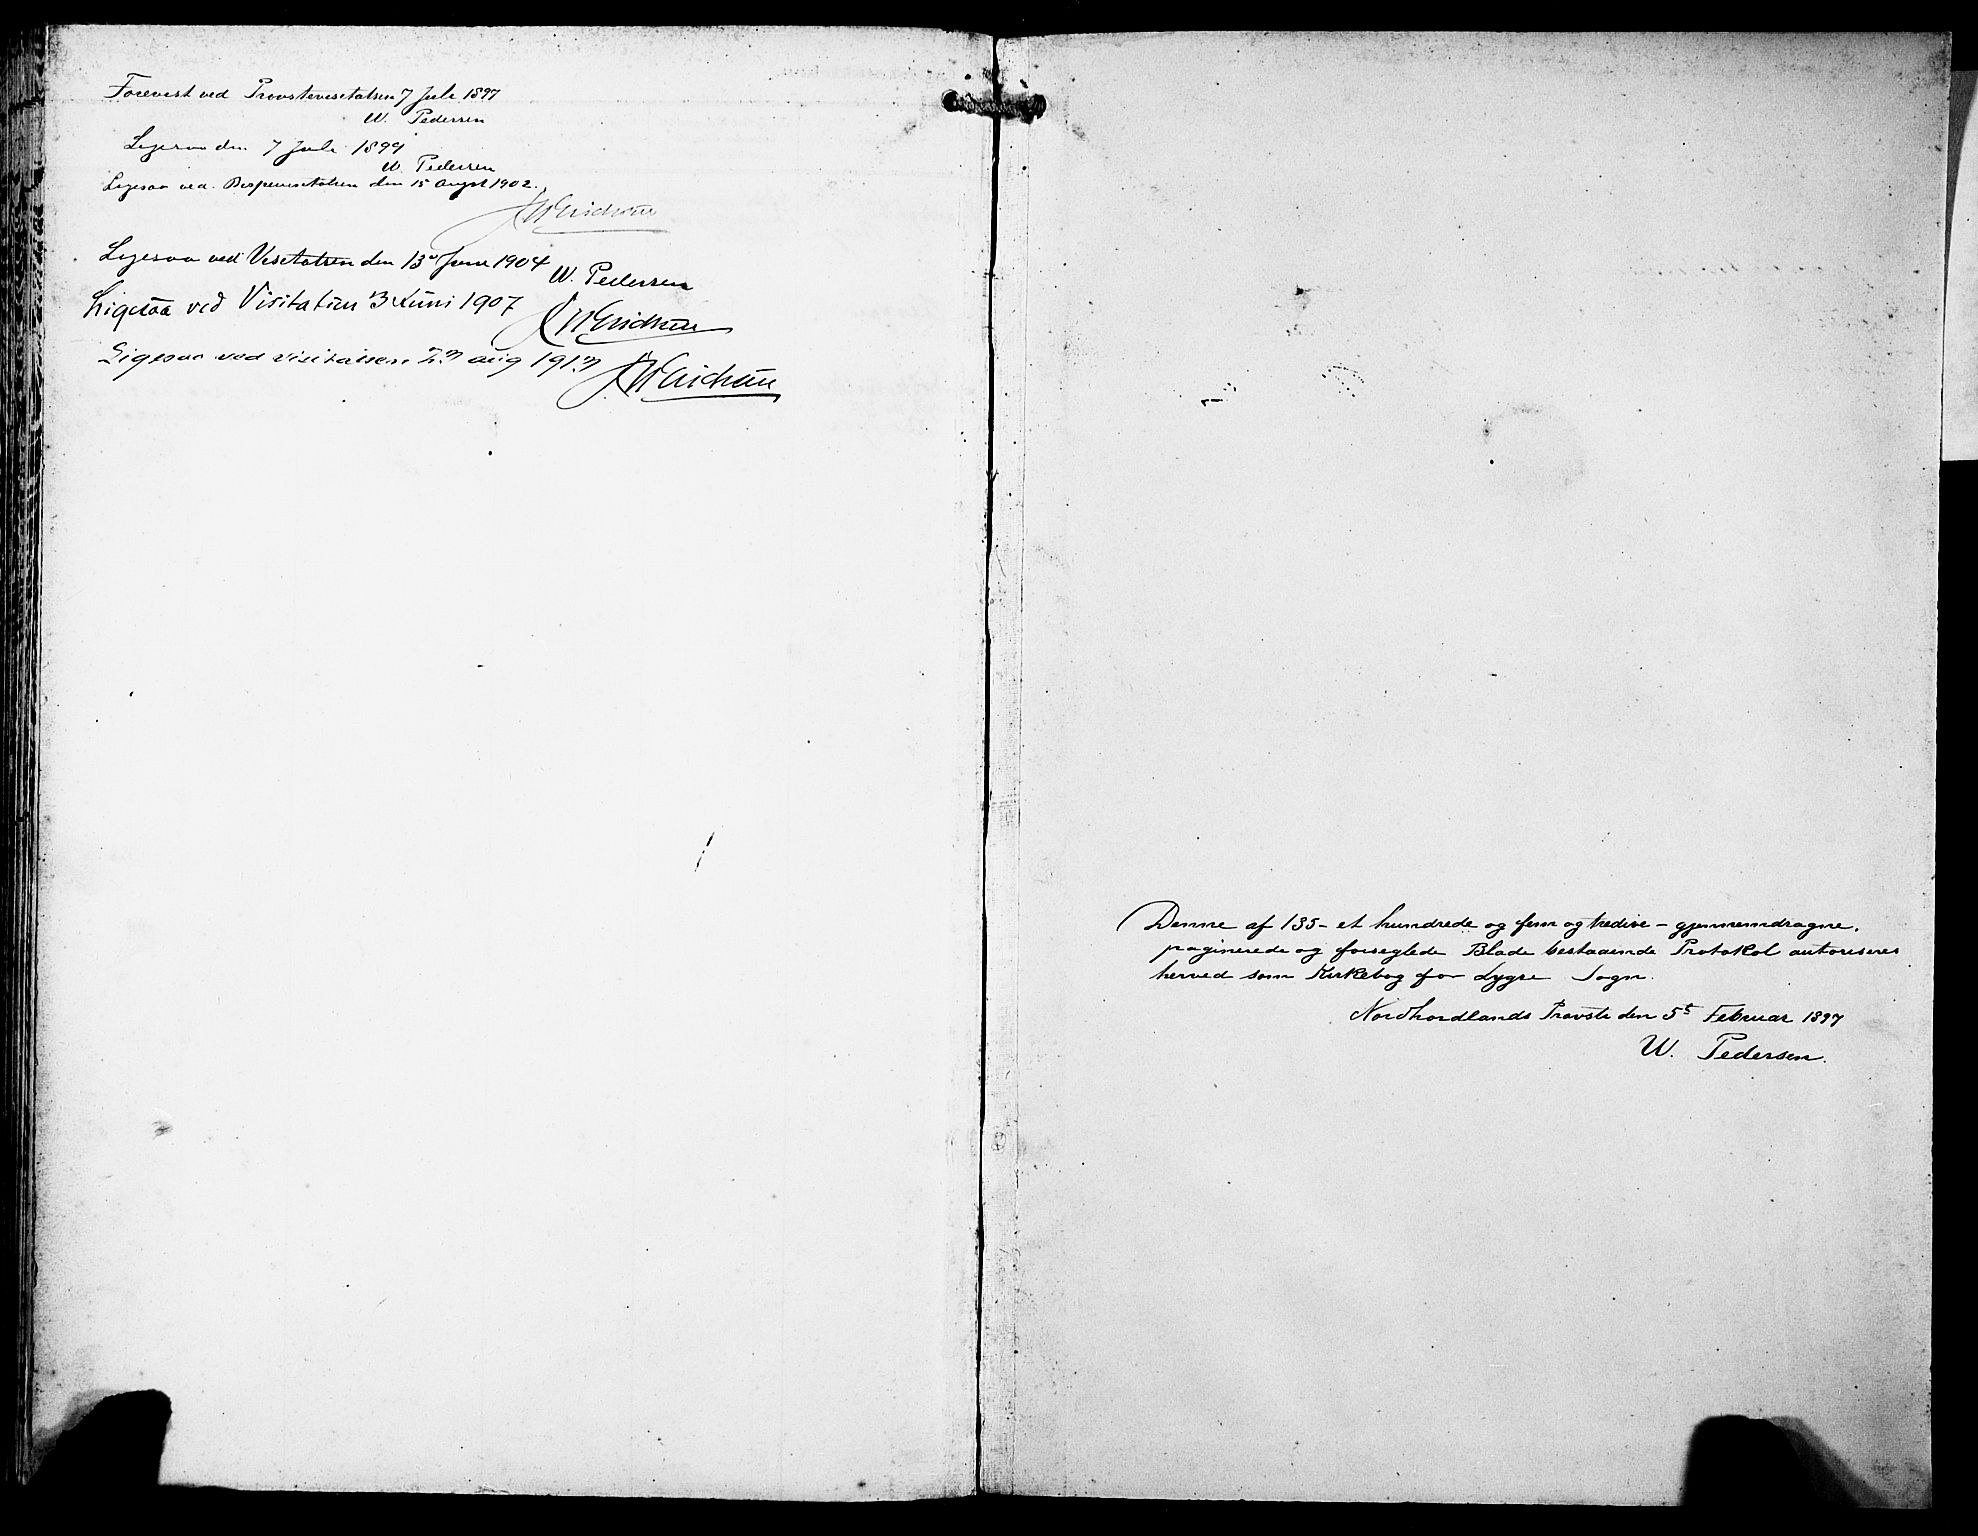 Forevist ved Provstevisitatsen 7 Juli 1897
W. Pedersen
Ligesaa den 7 Juli 1899
W. Pedersen
Ligesaa ved Bispevisitatsen den 15 August 1902.
Erichsen
Ligesaa ved Visitatsen den 13de Juni 1904
W. Pedersen
Ligesaa ved Visitatsen 3 Juni 1907
Erichsen
Ligesaa ved visitatsen 23 aug 1913
Erichsen
Denne af 135 - et hundrede og fem og tredive - gjennemdragne,
paginerede og forseglede Blade bestaaende Protokol autoriseres
herved som Kirkebog for Lygre Sogn.
Nordhordlands Provsti den 5te Februar 1897
W. Pedersen.